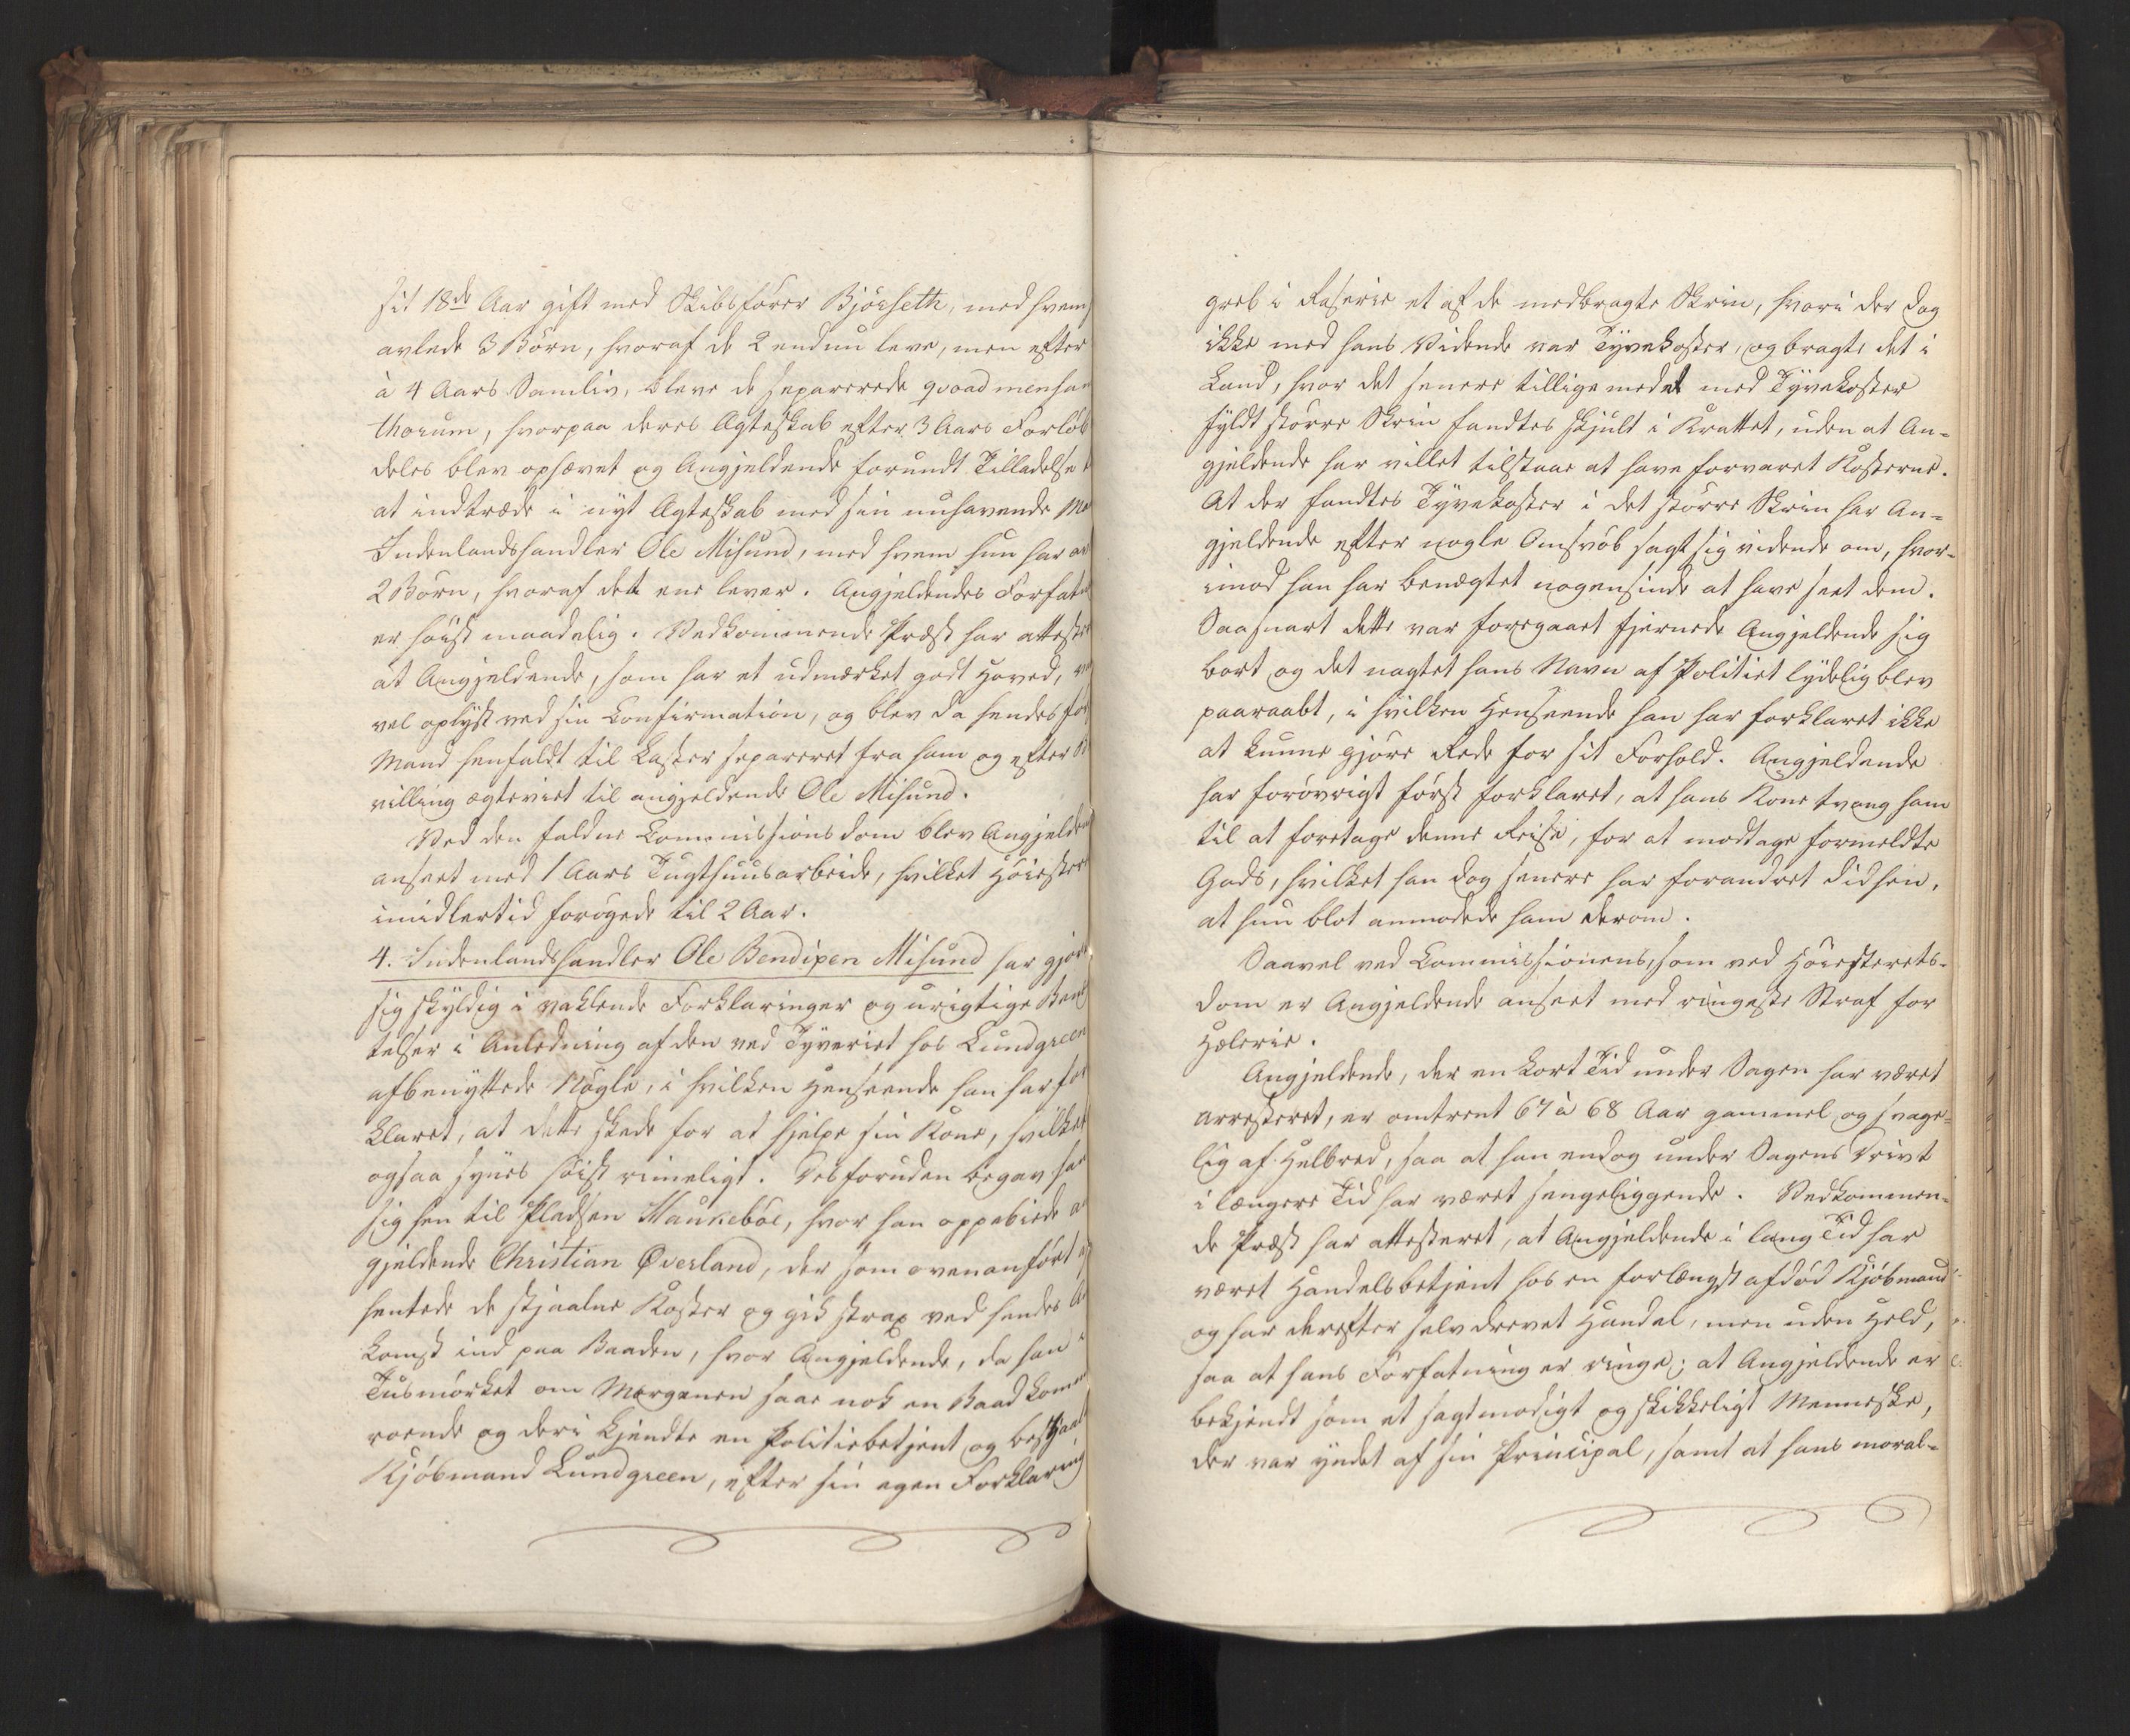 sit 18de Aar gift med Skibsfører Bjørseth, med hvem
avlede 3 Børn, hvoraf de 2 endnu leve, men efter
à 4 Aars Samliv, bleve de separerede qvoad mensam
thorum, hvorpaa deres Ægteskab efter 3 Aars Forløb
deles blev ophævet og Angjeldende forundt Tilladelse
at indtræde i nyt Ægteskab med sin nuhavende
Indenlandshandler Ole Misund, med hvem hun har
2 Børn, hvoraf det ene lever. Angjeldendes Forfat
er høist maadelig. Vedkommende Præst har atteste
at Angjeldende, som har et udmærket godt Hoved,
vel oplyst ved sin Confirmation, og blev da hendes
Mand henfaldt til Laster separeret fra ham og efter
villing ægteviet til angjeldende Ole Misund.
Ved den faldne Commissionsdom blev Angjelden
anseet med 1 Aars Tugthuusarbeide, hvilket Høiester
imidlertid forøgede til 2 Aar.
4. Indenlandshandler Ole Bendixen Misund har gjort
sig skyldig i vaklende Forklaringer og urigtige Benæg
telser i Anledning af den ved Tyveriet hos Lundgreen
afbenyttede Nøgle, i hvilken Henseende han har for
klaret, at dette skede for at hjelpe sin Kone, hvilket
ogsaa synes høist rimeligt. Desforuden begav han
sig hen til Pladsen Haukebøe, hvor han oppebiede
gjeldende Christian Øverland, der som ovenanført
hentede de stjaalne Koster og gik strax ved hendes
komst ind paa Baaden, hvor Angjeldende, da han
Tusmørket om Morgenen saae nok en Baad komme
roende og deri kjendte en Politiebetjent og bestjaal
Kjøbmand Lundgreen, efter sin egen Forklaring
greb i Raserie et af de medbragte Skrin, hvori der dog
ikke med hans Vidende var Tyvekoster, og bragte det i
Land, hvor det senere tilligemed et med Tyvekoster
fyldt større Skrin fandtes skjult i Krattet, uden at An-
gjeldende har villet tilstaae at have forvaret Kosterne.
At der fandtes Tyvekoster i det større Skrin har An-
gjeldende efter nogle Omsvøb sagt sig vidende om, hvor-
imod han har benægtet nogensinde at have seet dem.
Saasnart dette var foregaaet fjernede Angjeldende sig
bort og det uagtet hans Navn af Politiet lydelig blev
paaraabt, i hvilken Henseende han har forklaret ikke
at kunne gjøre Rede for sit Forhold. Angjeldende
har forøvrigt først forklaret, at hans Kone tvang ham
til at foretage denne Reise, for at modtage formeldte
Gods, hvilket han dog senere har forandret didhen,
at hun blot anmodede ham derom.
Saavel ved Commissionens, som ved Høiesterets-
dom er Angjeldende anseet med ringeste Straf for
Hælerie.
Angjeldende, der en kort Tid under Sagen har været
arresteret, er omtrent 67 à 68 Aar gammel og svage-
lig af Helbred, saa at han endog under Sagens Drivt
i længere Tid har været sengeliggende. Vedkommen-
de Præst har attesteret, at Angjeldende i lang Tid har
været Handelsbetjent hos en forlængst afdød Kjøbmand
og har derefter selv drevet Handel, men uden Held,
saa at hans Forfatning er ringe; at Angjeldende er
bekjendt som et sagtmodigt og skikkeligt Menneske,
der var yndet af sin Principal, samt at hans moral-